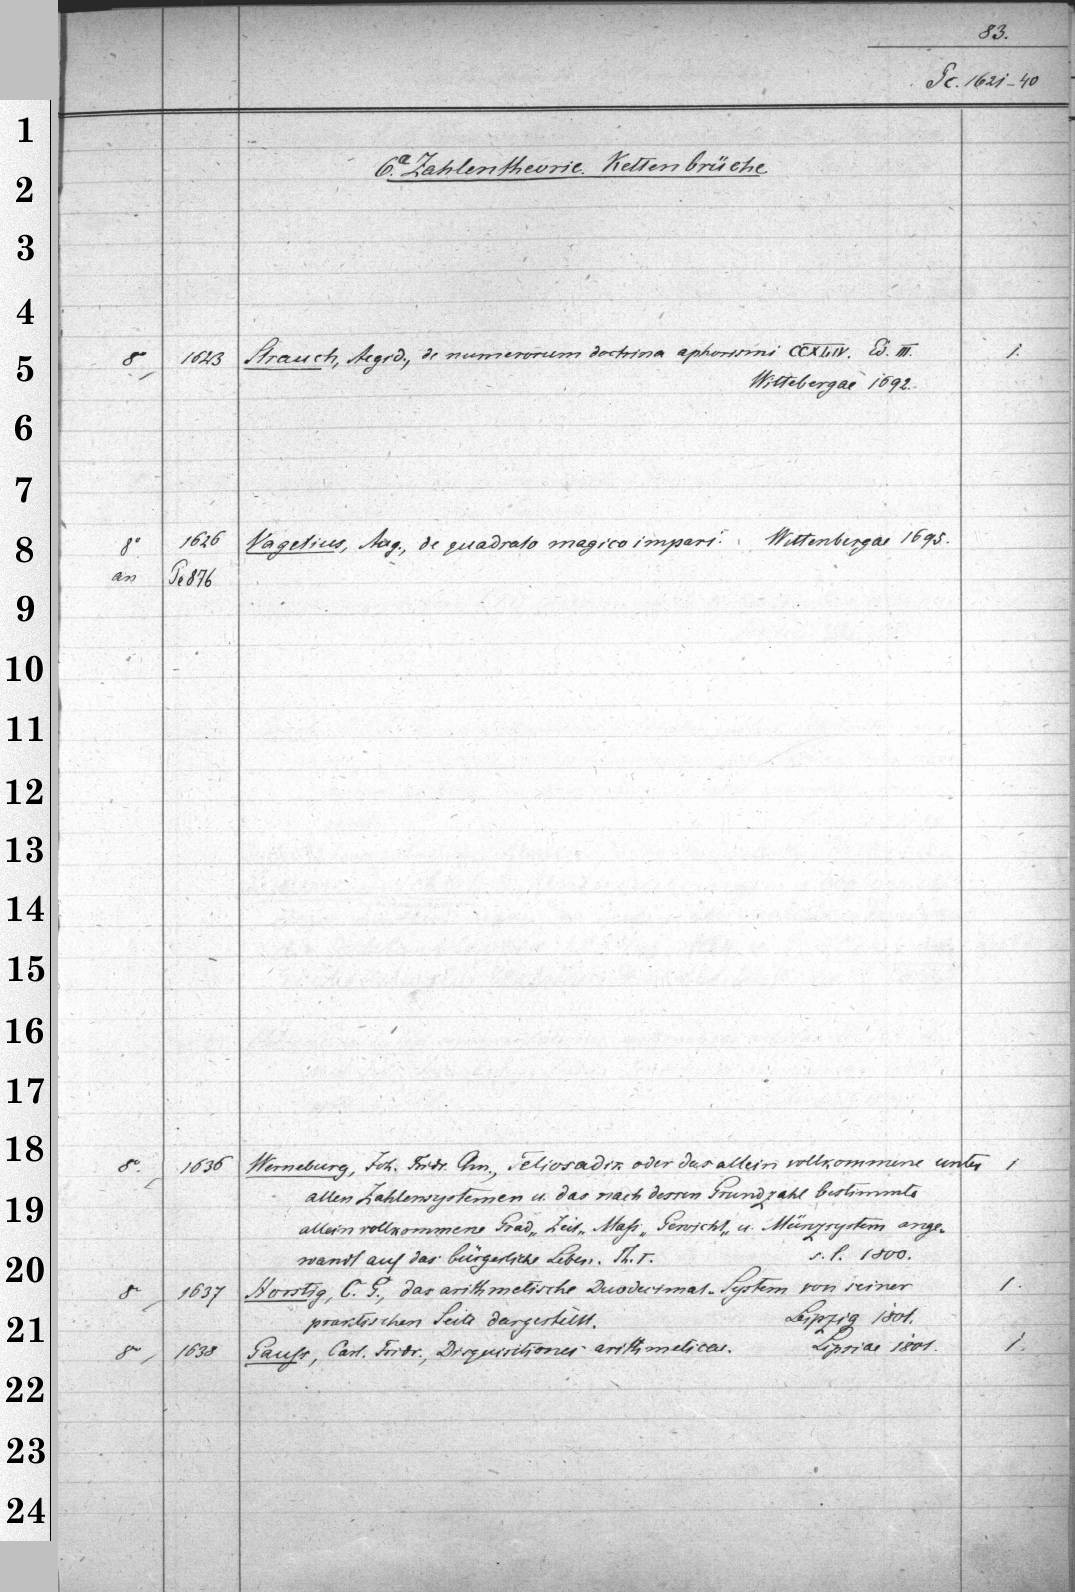 83.
Pc. 1621-40
6.a Zahlentheorie. Kettenbrüche
8° 1623 Strauch, Aegid., de numerorum doctrina aphorismi CCXLIV. Ed. III. 1.
Wittebergae 1692.
8° 1626 Vagetius, Aug., de quadrato magico impari. Wittenbergae 1695.
an Pc 876
8° 1636 Werneburg, Joh. Fridr. Chn., Teliosadik oder das allein vollkommene unter 1
allen Zahlensystemen u. das nach dessen Grundzahl bestimmte
allein vollkommene Grad-, Zeit-, Maß-, Gewicht-, u. Münzsystem ange-
wandt auf das bürgerliche Leben. Th. I. s. l. 1800.
8° 1637 Horstig, C. G., das arithmetische Duodecimal-System von seiner 1.
praktischen Seite dargestellt. Leipzig 1801.
8° 1638 Gauss, Carl. Fridr., Disquisitiones arithmeticae. Lipsiae 1801. 1.
1
2
3
4
5
6
7
8
9
10
11
12
13
14
15
16
17
18
19
20
21
22
23
24